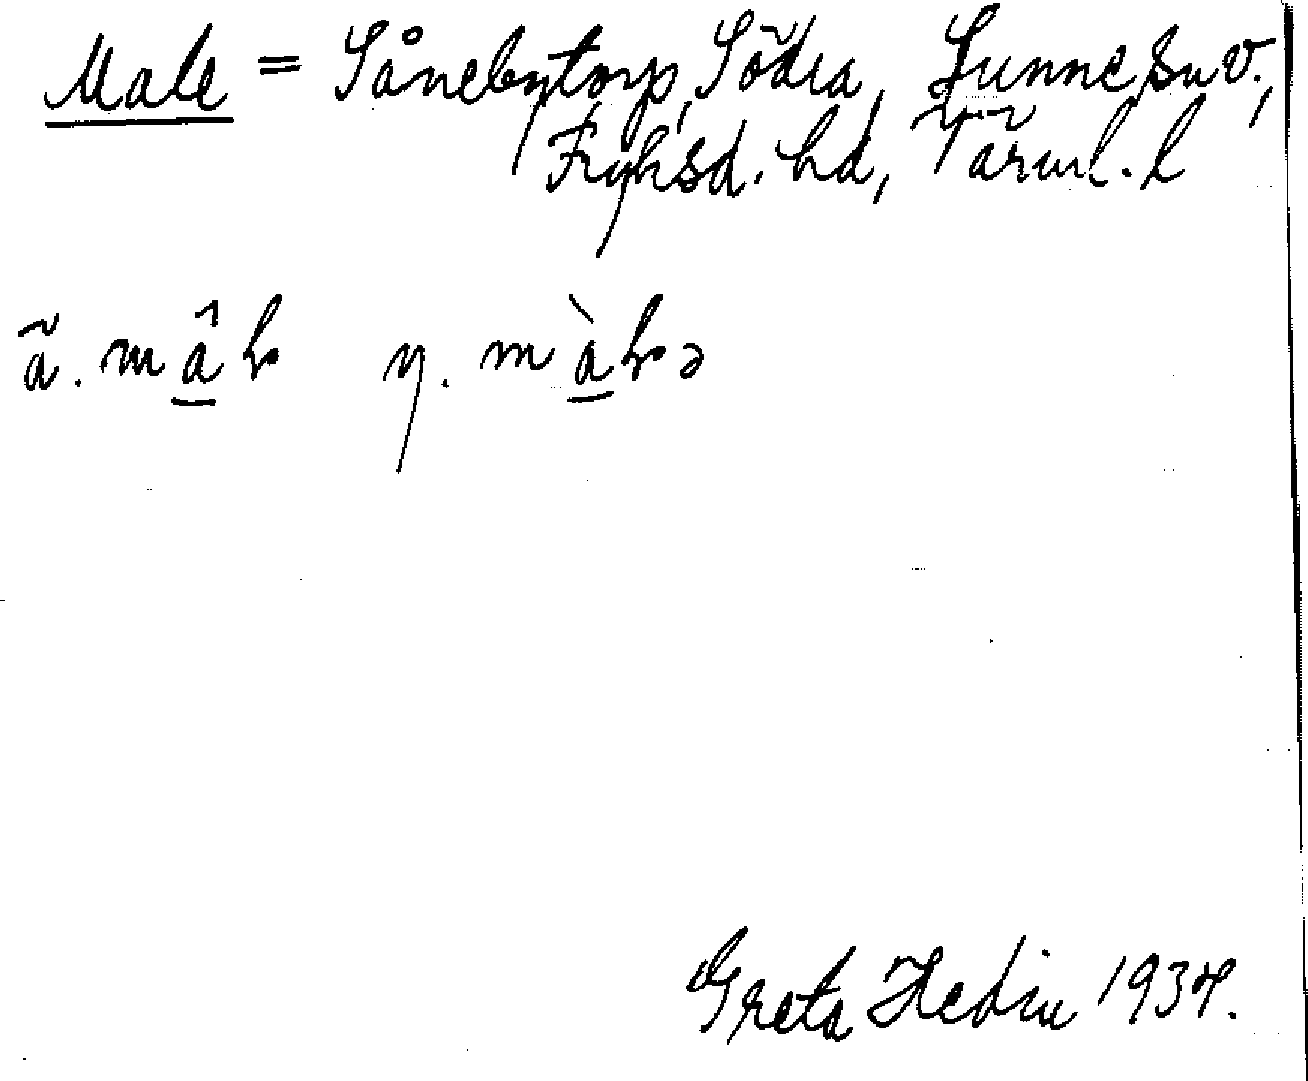 Male = Sånebytorp, Södra, Sunne sn v.,
Fryksd. hd, Värml. l
ä. mâɫ y. màɫə
Greta Hedin 1934.